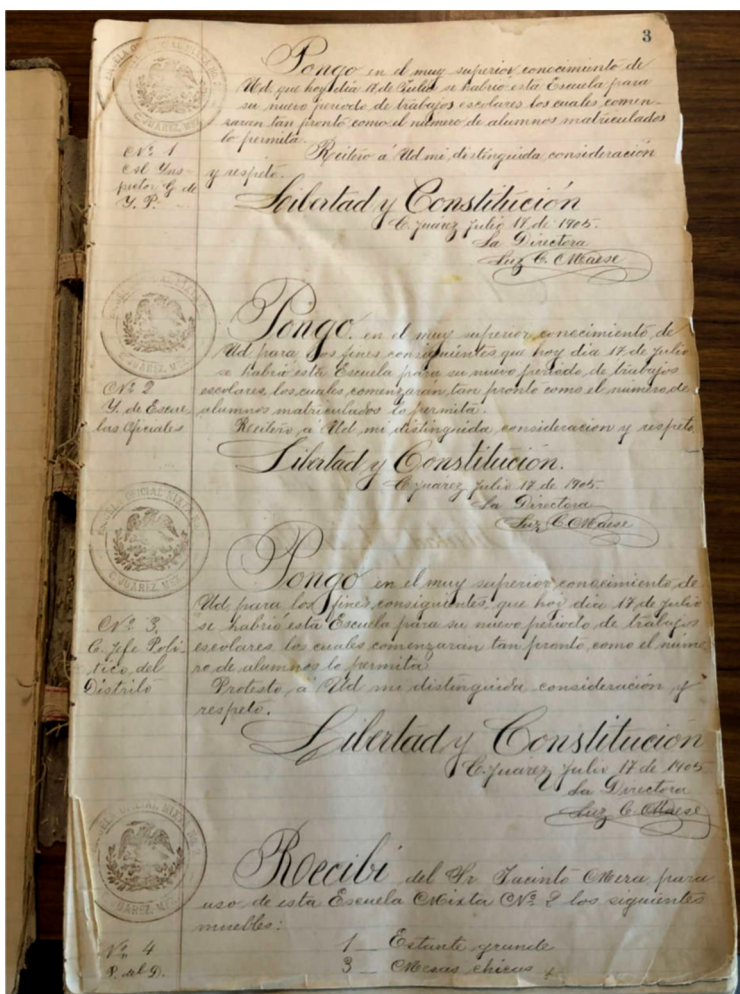 3
ESCUELA OFICIAL MIXTA No. 2
C. JUÁREZ, MEX.
Nº 1
Al Ins-
pector G. de
Y. P.
Pongo en el muy superior conocimiento de
Ud. que hoy día 17 de Julio se habrió esta Escuela para
su nuevo periodo de trabajos escolares los cuales comen-
zaran tan pronto como el número de alumnos matriculados
lo permita.
Reitero á Ud mi distinguida consideración
y respeto.
Libertad y Constitución
C. Juarez Julio 17 de 1905.
La Directora
Luz C. Maese
C. JUÁREZ, MEX.
Nº 2
Y. de Escue
las Oficiales
Pongo en el muy superior conocimiento de
Ud para los fines consiguientes que hoy día 17 de julio
se habrió esta Escuela para su nuevo periodo de trabajos
escolares, los cuales comenzarán tan pronto como el número de
alumnos matriculados lo permita.
Reitero á Ud mi distinguida consideracion y respeto
Libertad y Constitución.
C. Juarez julio 17 de 1905.
La Directora
Luz C. Maese
ESCUELA OFICIAL MIXTA No. 2
C. JUÁREZ, MEX.
Nº 3,
C. Jefe Polí
tico del
Distrito
Pongo en el muy superior conocimiento de
Ud para los fines consiguientes, que hoy día 17 de julio
se habrió esta Escuela para su nuevo periodo de trabajos
escolares los cuales comenzaran tan pronto como el núme
ro de alumnos lo permita
Protesto á Ud mi distinguida consideración y
respeto.
Libertad y Constitución
C. Juarez Julio 17 de 1905
La Directora
Luz C. Maese
ESCUELA OFICIAL MIXTA No. 2
C. JUÁREZ, MEX.
Nº 4
P. del D.
Recibí del Sr. Jacinto Mera para
uso de esta Escuela Mixta Nº 2 los siguientes
muebles:
1 — Estante grande
3 — Mesas chicas